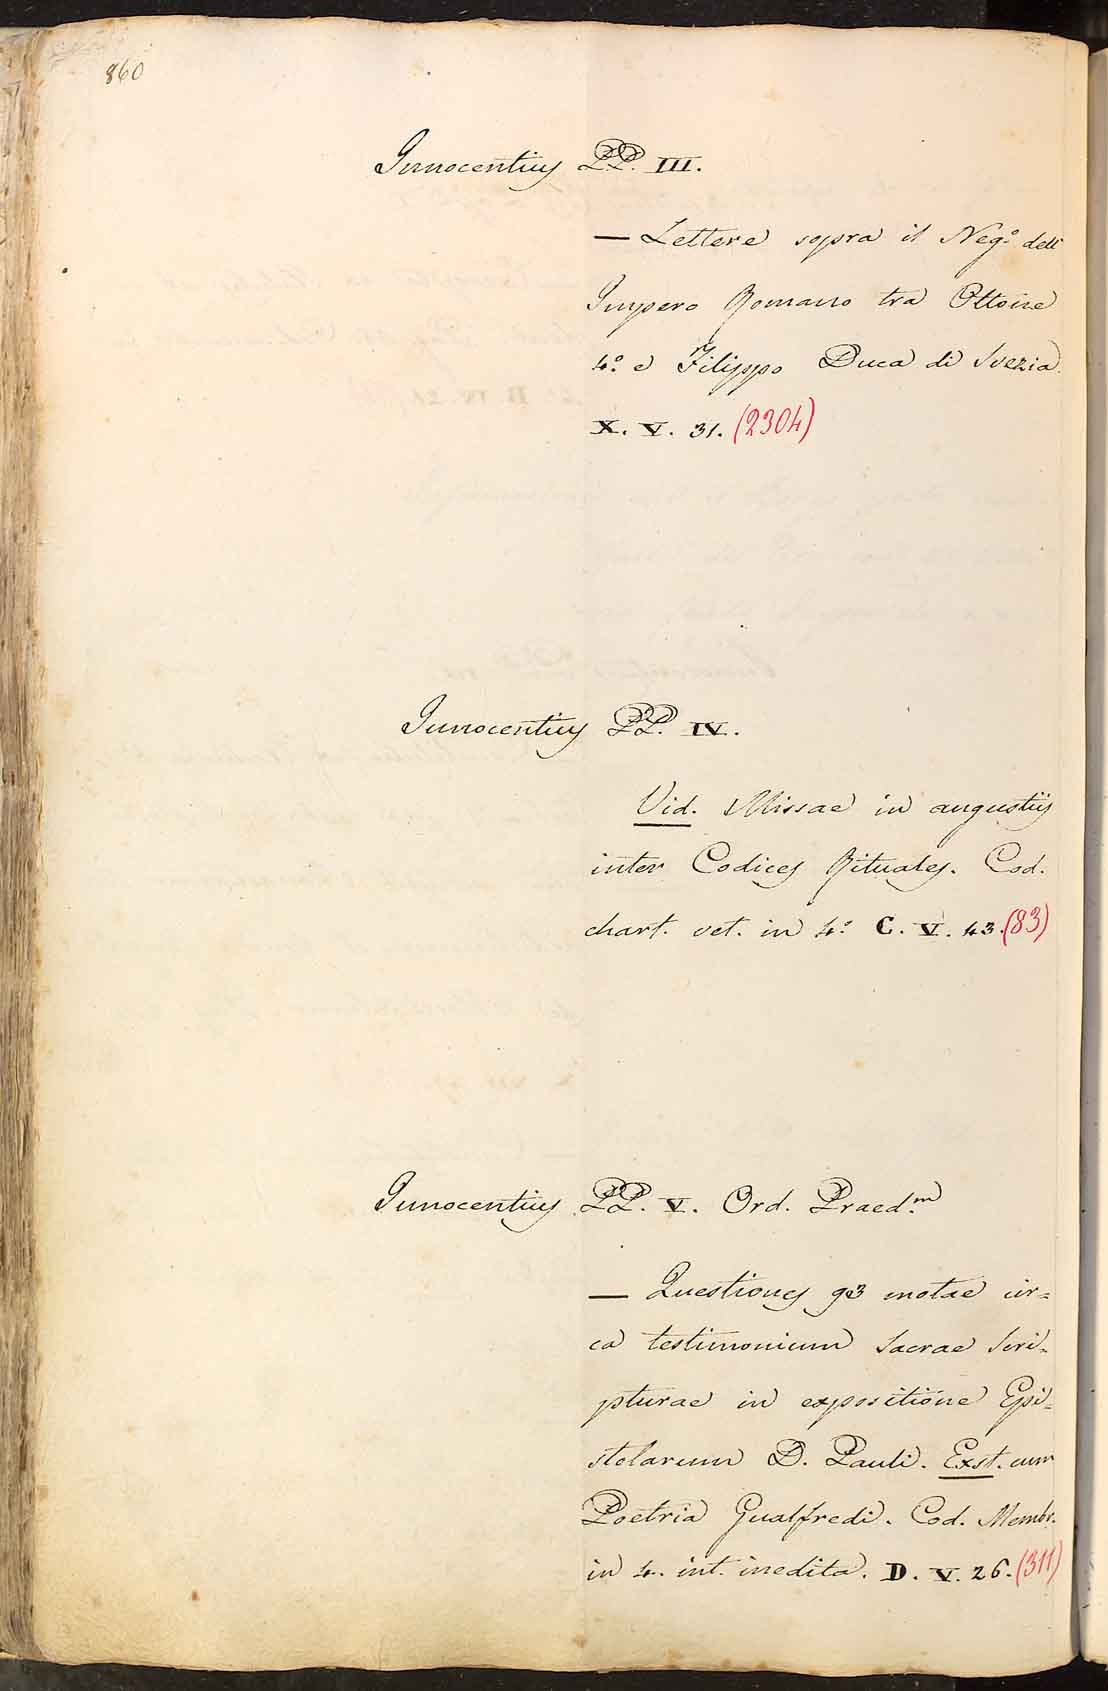 860
Innocentius PP. III.
— Lettere sopra il Neg.º dell'
Impero Romano tra Ottone
4.º e Filippo Duca di Svezia.
X. V. 31. (2304)
Innocentius PP. IV.
Vid. Missae in angustiis
inter Codices Rituales. Cod.
chart. vet. in 4.º C. V. 43. (83)
Innocentius PP. V. Ord. Praed.m
— Questiones motae cir=
ca testimonium Sacrae Scri=
pturae in expositione Epi=
stolarum D. Pauli. Exst. cum
Poetria Gualfredi. Cod. Membr.
in 4. int. inedita. D. V. 26. (311)